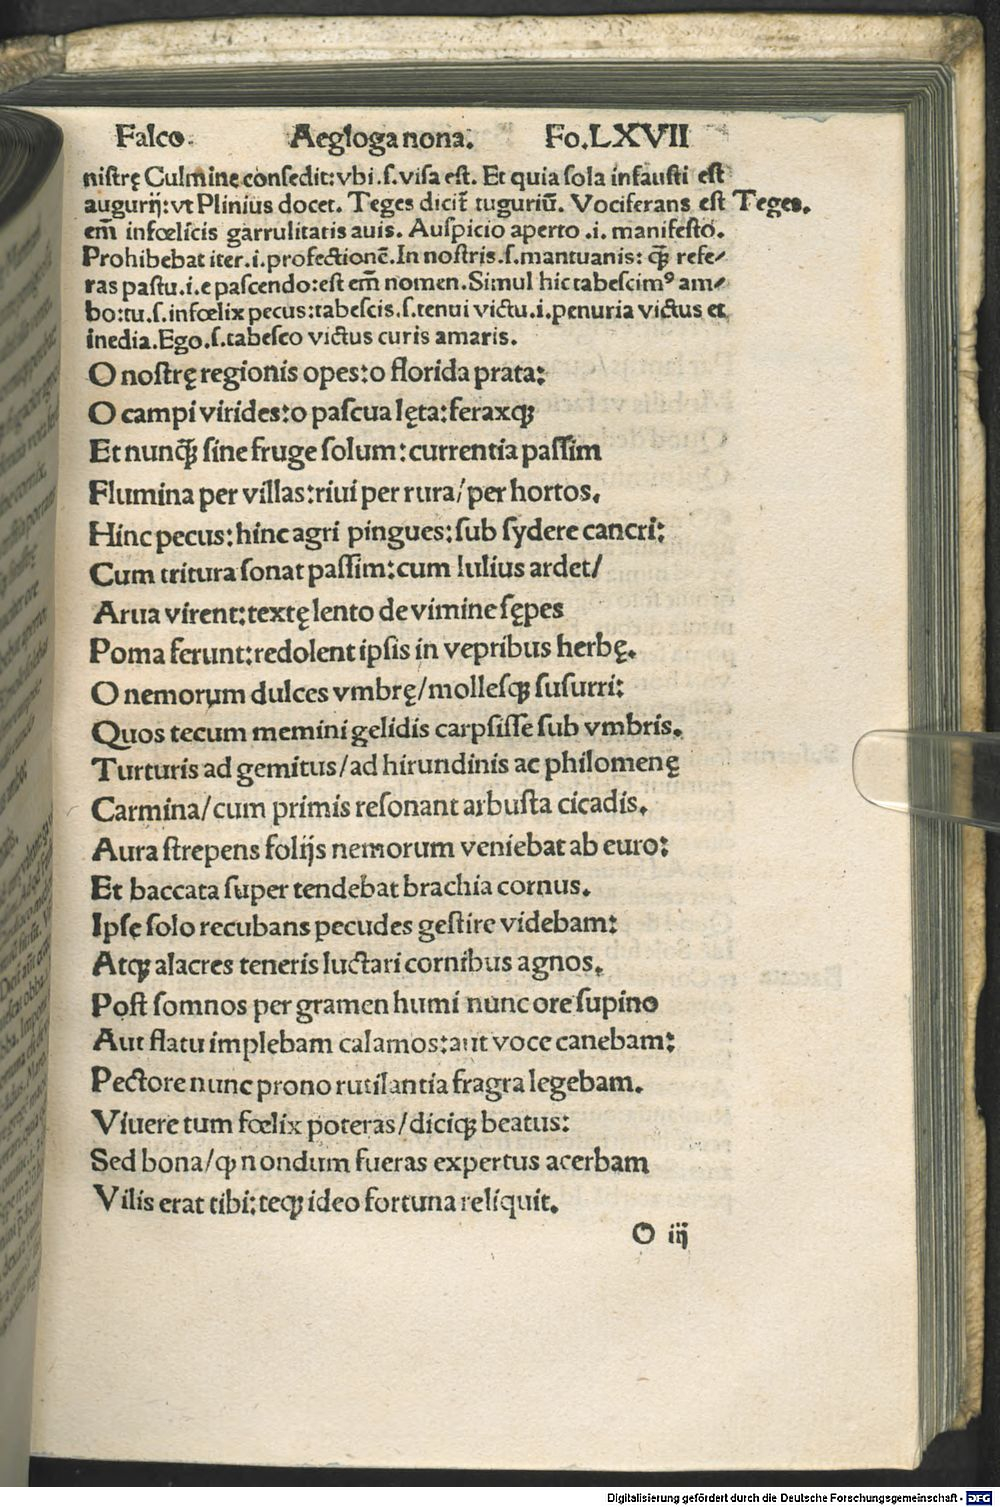 Falco. Aegloga nona. Fo.LXVII
niſtrę Culmine conſedit: vbi .ſ. viſa eſt. Et quia ſola infauſti eſt
augurij: vt Plinius docet. Teges dicit̃ tuguriũ. Vociferans eſt Teges.
em̃ infœlicis garrulitatis auis. Auſpicio aperto .i. manifeſto.
Prohibebat iter .i. profectionẽ. In noſtris .ſ. mantuanis: ꝙ̃ refe⸗
ras paſtu .i. e paſcendo: eſt em̃ nomen. Simul hic tabeſcimꝰ am⸗
bo: tu .ſ. infœlix pecus: tabeſcis .ſ. tenui victu .i. penuria victus et
inedia. Ego .ſ. tabeſco victus curis amaris.
O noſtrę regionis opes: o florida prata:
O campi virides: o paſcua lęta: feraxqꝫ
Et nunꝙ̃ ſine fruge ſolum: currentia paſſim
Flumina per villas: riui per rura/ per hortos.
Hinc pecus: hinc agri pingues: ſub ſydere cancri:
Cum tritura ſonat paſſim: cum Iulius ardet/
Arua virent: textę lento de vimine ſępes
Poma ferunt: redolent ipſis in vepribus herbę.
O nemorum dulces vmbrę/ molleſqꝫ ſuſurri:
Quos tecum memini gelidis carpſiſſe ſub vmbris.
Turturis ad gemitus/ ad hirundinis ac philomenę
Carmina/ cum primis reſonant arbuſta cicadis.
Aura ſtrepens folijs nemorum veniebat ab euro:
Et baccata ſuper tendebat brachia cornus.
Ipſe ſolo recubans pecudes geſtire videbam:
Atqꝫ alacres teneris luctari cornibus agnos.
Poſt ſomnos per gramen humi nunc ore ſupino
Aut flatu implebam calamos: aut voce canebam:
Pectore nunc prono rutilantia fragra legebam.
Viuere tum fœlix poteras/ diciqꝫ beatus:
Sed bona/ ꝙ nondum fueras expertus acerbam
Vilis erat tibi: teqꝫ ideo fortuna reliquit.
O iij
Digitalisierung gefördert durch die Deutsche Forschungsgemeinschaft - DFG